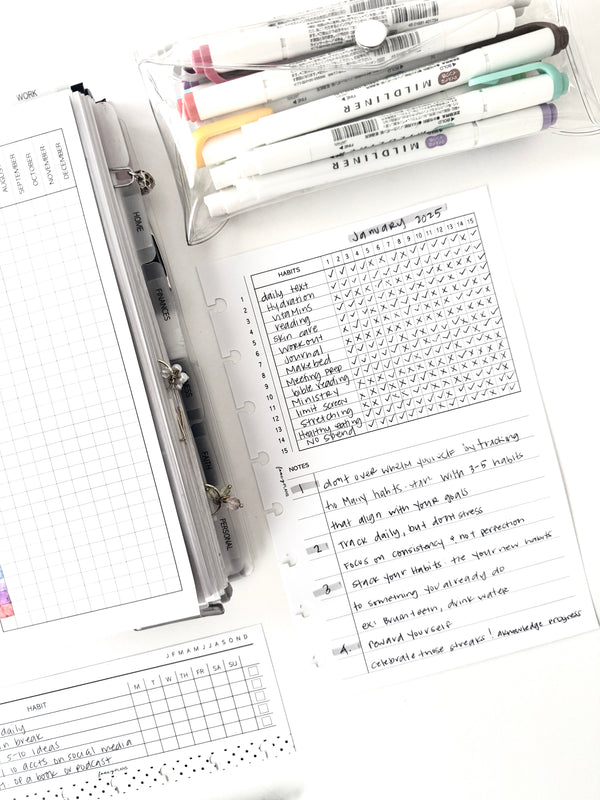 WORK
AUGUST
SEPTEMBER
OCTOBER
NOVEMBER
DECEMBER
HOME
FINANCES
FAITH
PERSONAL
MILDLINER
MILDLINER
January 2025
HABITS 1 2 3 4 5 6 7 8 9 10 11 12 13 14 15
1 daily text
2 Hydration
3 vitamins
4 reading
5 skin care
6 workout
7 Journal
8 Make bed
9 Meeting prep
10 bible reading
11 Ministry
12 limit screen
13 stretching
14 Healthy eating
15 No spend
NOTES
1 don't over whelm yourself by tracking
to many habits. start with 3-5 habits
that align with your goals
2 Track daily, but don't stress
Focus on consistency & not perfection
3 Stack your habits. tie your new habits
to something you already do
ex: Brush teeth, drink water
4. Reward yourself
celebrate those streaks! Acknowledge progress
J F M A M J J A S O N D
HABIT M T W TH FR SA SU
daily
break
5-10 ideas
10 accts on social media
of a book or podcast